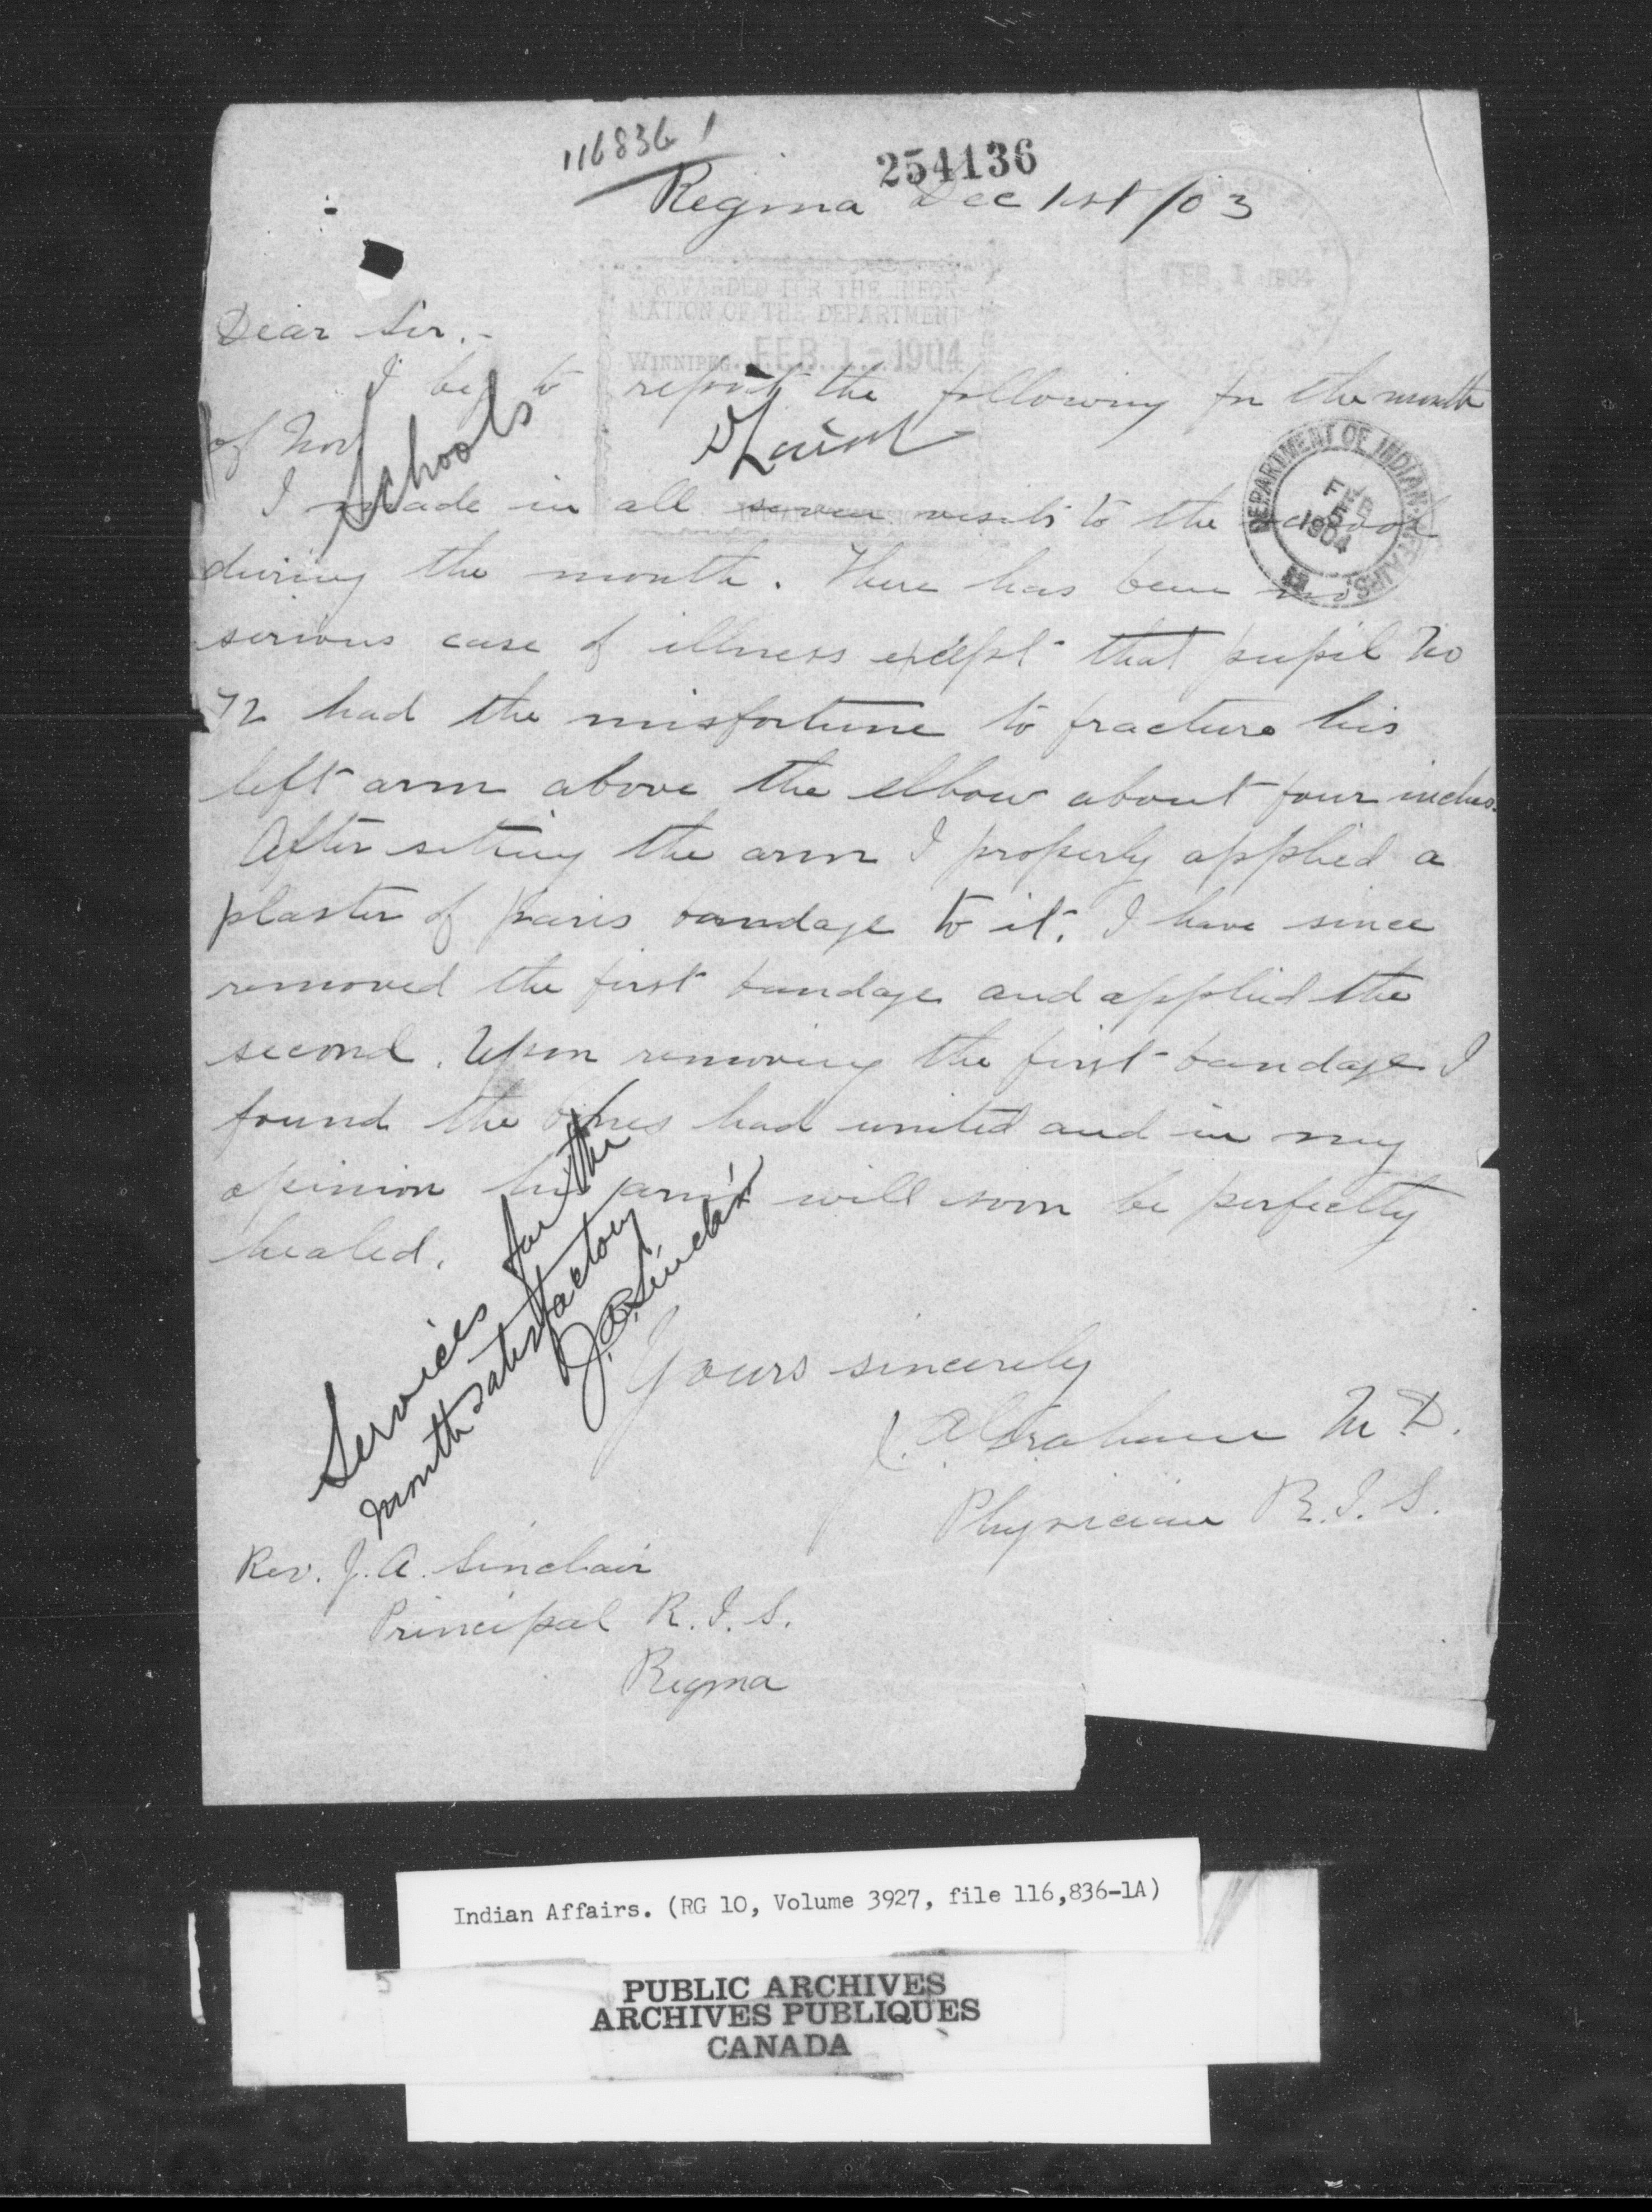 116836 1
254136
Regina Dec 1st /03
FORWARDED FOR THE INFOR-
MATION OF THE DEPARTMENT
WINNIPEG. FEB 1 - 1904
FEB. 1 1904
Dear Sir.-
I beg to report the following for the month
of Nov
Schools
D Laird
DEPARTMENT OF INDIAN AFFAIRS
FEB 5 1904
I made in all seven visits to the school
during the month. There has been no
serious case of illness except that pupil No
72 had the misfortune to fracture his
left arm above the elbow about four inches.
After setting the arm I properly applied a
plaster of paris bandage to it. I have since
removed the first bandage and applied the
second. Upon removing the first bandage I
found the bones had united and in my
opinion his arm will soon be perfectly
healed.
Services for the
month satisfactory
J.A. Sinclair
Yours sincerely
Graham M.D.
Physician R.I.S.
Rev. J. A. Sinclair
Principal R.I.S.
Regina
Indian Affairs. (RG 10, Volume 3927, file 116,836-1A)
5
PUBLIC ARCHIVES
ARCHIVES PUBLIQUES
CANADA